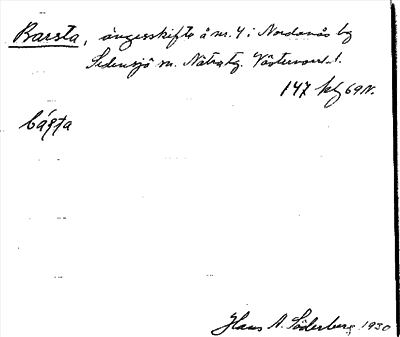 Barsta, ängesskifte å nr. 4 i Nordanås by
Sidensjö sn. Nätra tg. Västernorrl. l.
147
bás̨ta
Hans A. Söderberg 1930